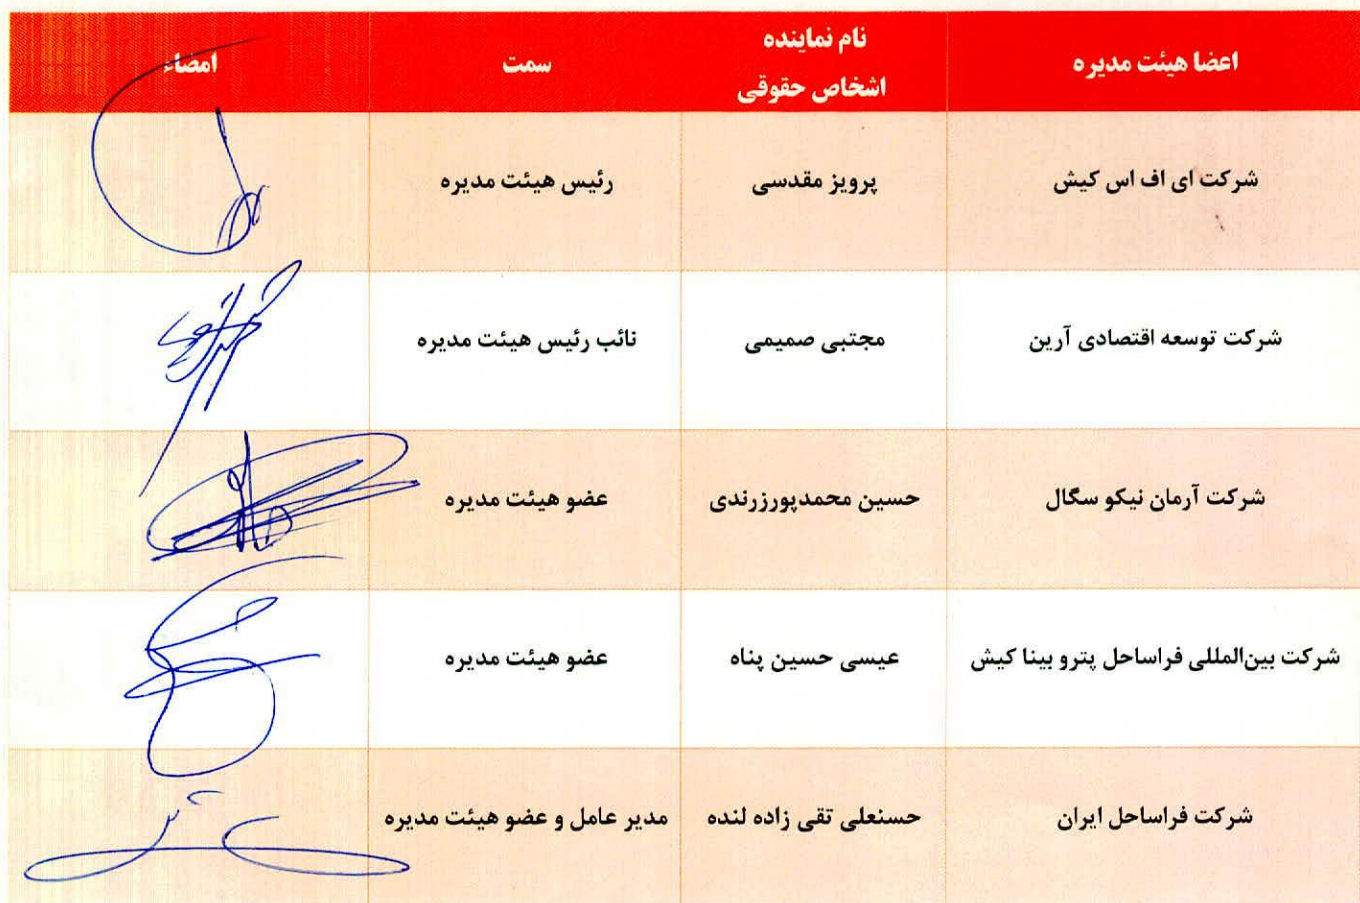 اعضا هیئت مدیره
نام نماینده
اشخاص حقوقی
سمت
امضاء
شرکت ای اف اس کیش
پرویز مقدسی
رئیس هیئت مدیره
شرکت توسعه اقتصادی آرین
مجتبی صمیمی
نائب رئیس هیئت مدیره
شرکت آرمان نیکو سگال
حسین محمدپورزرندی
عضو هیئت مدیره
شرکت بین‌المللی فراساحل پترو بینا کیش
عیسی حسین پناه
عضو هیئت مدیره
شرکت فراساحل ایران
حسنعلی تقی زاده لنده
مدیر عامل و عضو هیئت مدیره